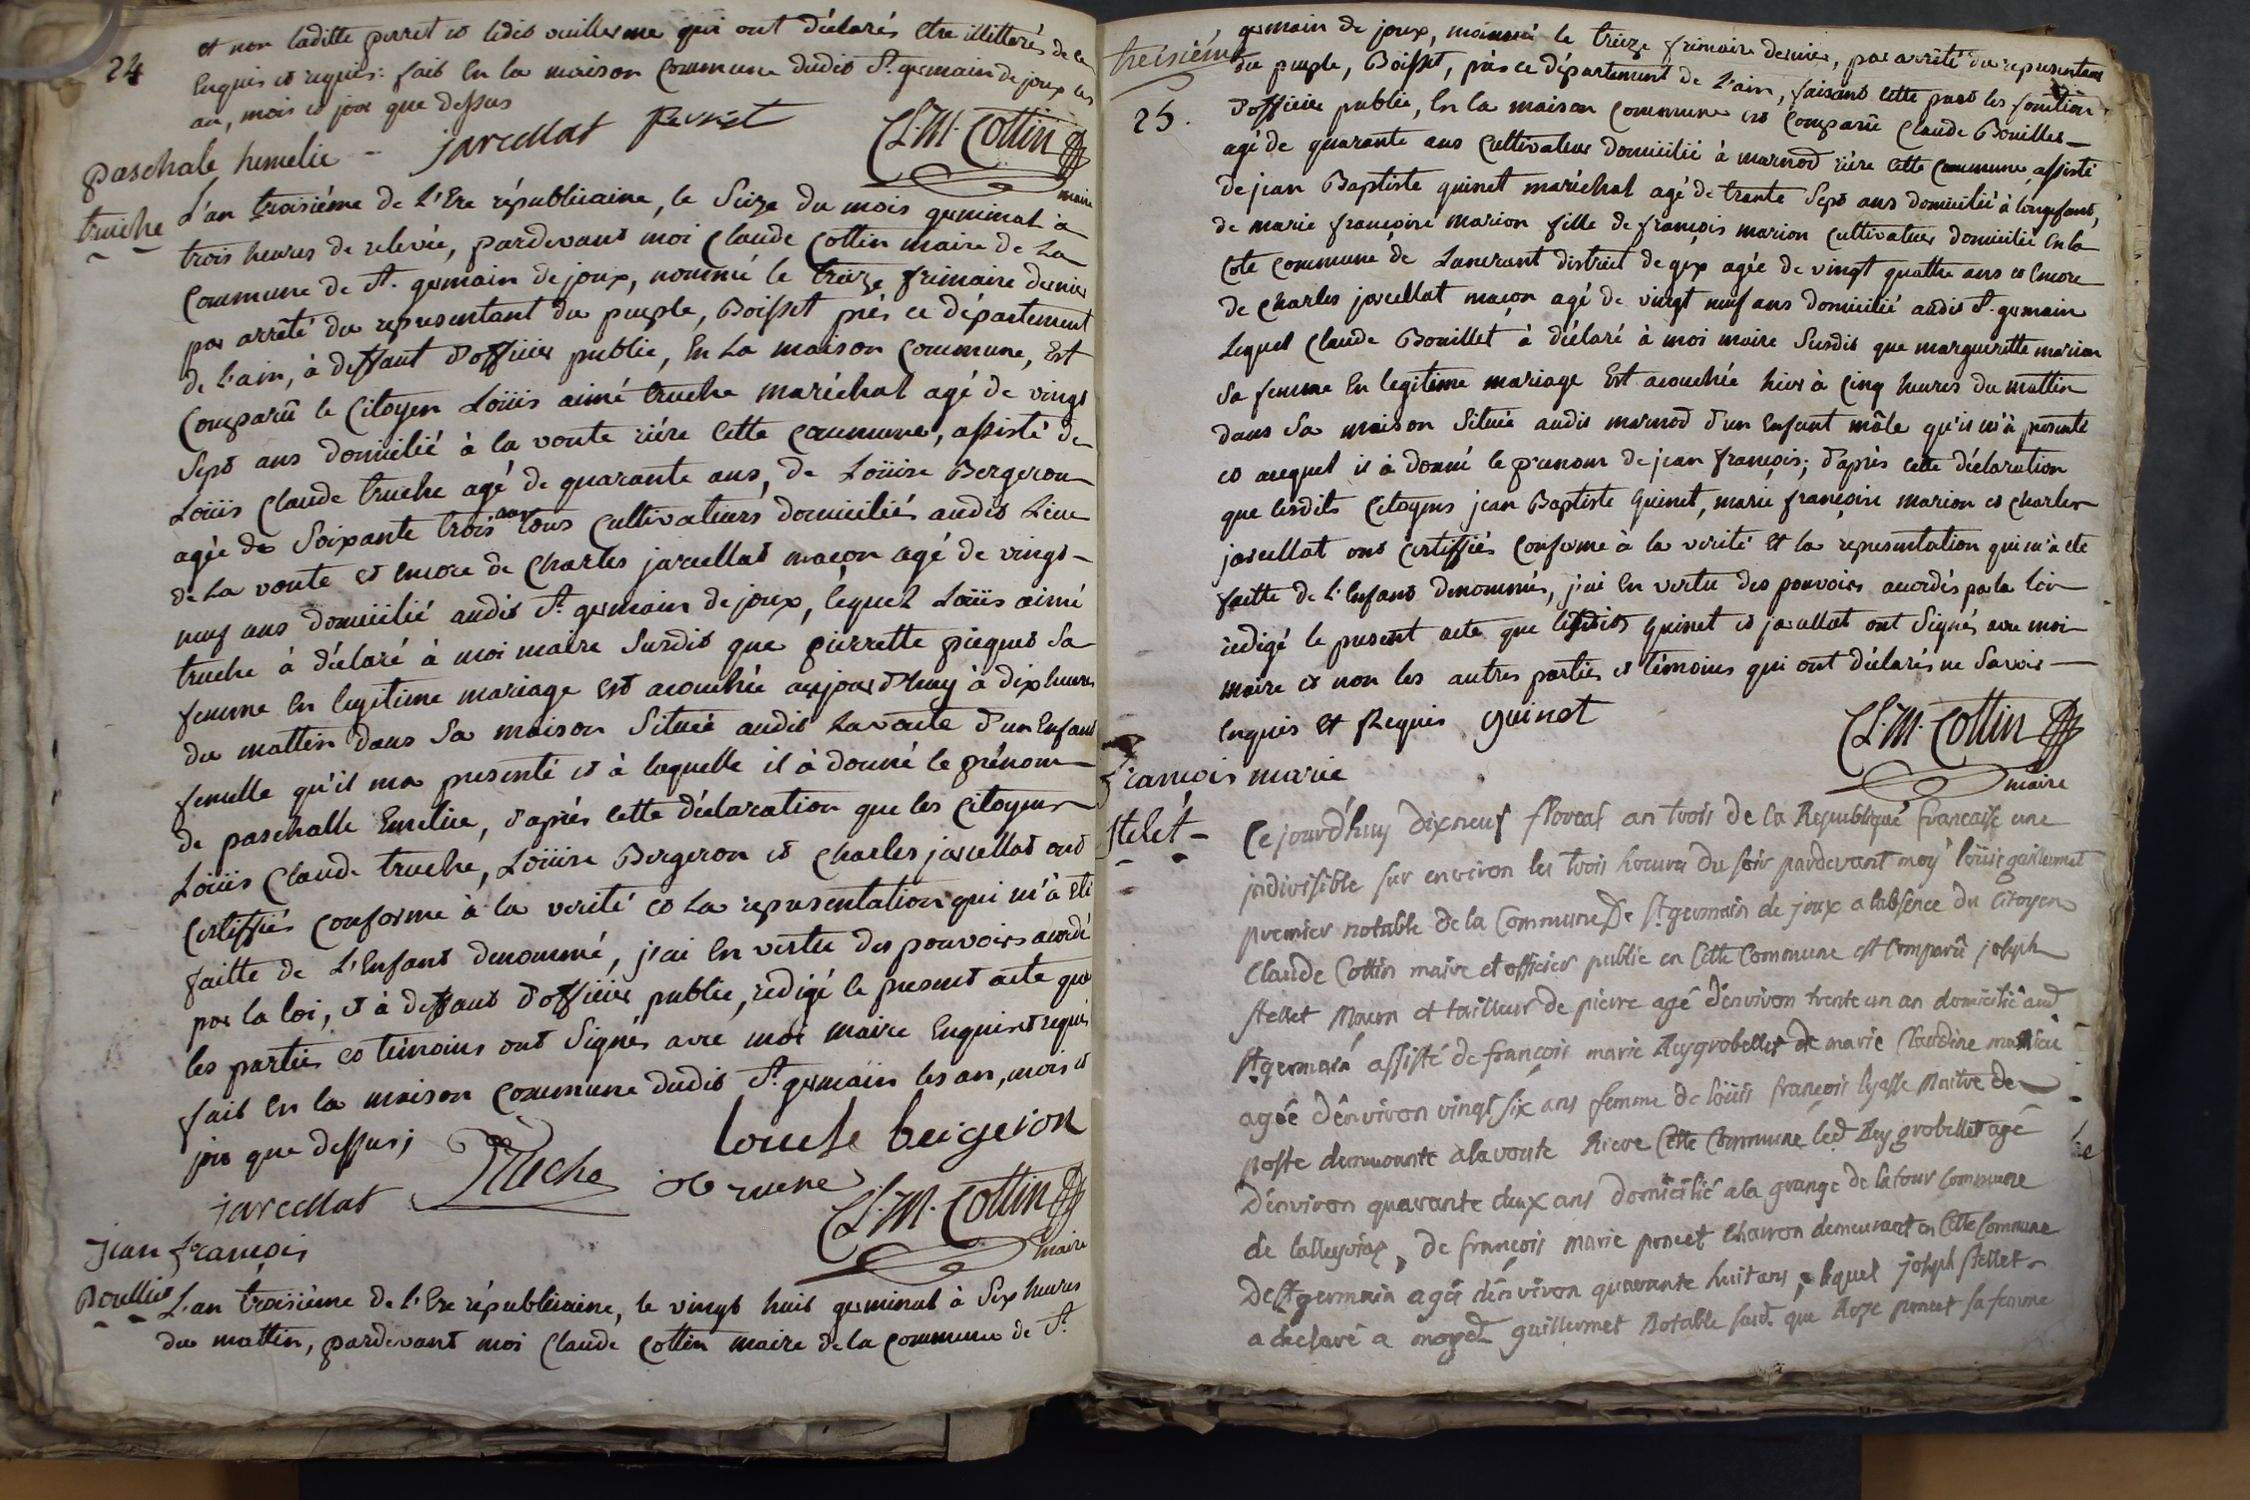 24
et non laditte perret et ledit vuillerme qui ont déclarés etre illitterés de ce
Enquis et requis: fait En la maison Commune dudit St. germain de joux les
an, mois et jour que dessus
jarcellat perret Cl. M. Cottin
maire
paschale hemelie
truche
L'an troisiéme de l'Ere républicaine, le Seize du mois germinal à
trois heures de relevée, pardevant moi Claude Cottin maire de La
Commune de St. germain de joux, nommé le treize frimaire dernier
par arrêté du representant du peuple, Boisset près ce département
de l'ain, à deffaut d'officier public, En La maison Commune, Est
Comparû le Citoyen Loüis aimé truche maréchal agé de vingt
Sept ans domicilié à la voute riére Cette Commune, assisté de
Loüis Claude truche agé de quarante ans, de Loüise Bergeron
agée de Soixante trois ans tous Cultivateurs domiciliés audit Lieu
de La voute et encore de Charles jarcellat maçon agé de vingt
neuf ans domicilié audit St. germain de joux, lequel Loüis aimé
truche à déclaré à moi maire Susdit que pierrette picquet Sa
femme En legitime mariage Est acouchée aujourd'huy à dix heures
du mattin dans Sa maison Située audit Lavoute d'un Enfant
femelle qu'il ma presenté et à laquelle il à donné le prénom
de paschalle Emelie, d'après cette déclaration que les Citoyens
Loüis Claude truche, Loüise Bergeron et Charles jarcellat ont
Certiffiés Conforme à la verité et La representation qui m'à eté
faitte de L'Enfant denommé, j'ai En vertu des pouvoirs acordé
par la loi, et à deffaut d'officier public, rédigé le present acte que
les parties et témoins ont Signés avec moi maire Enquis et requis
fait En la maison Commune dudit St. germain les an, mois et
jour que dessus;
louise bergeron
jarcellat Truche
Cl. M. Cottin
maire
jean françois
Bouillet
L'an troisiéme de l'Ere républicaine, le vingt huit germinal à Six heures
du mattin, pardevant moi Claude Cottin maire de la Commune de St.
troisiéme
25.
germain de joux, nommé le treize frimaire dernier, par arrêté du representant
du peuple, Boisset, près ce département de L'ain, faisant cette part les fonctions
d'officier public, En La maison Commune est Comparû Claude Bouillet
agé de quarante ans Cultivateur domicilié à marnod riére cette Commune, assisté
de jean Baptiste quinet maréchal agé de trente Sept ans domicilié à longefant,
de marie françoise marion fille de françois marion Cultivateur domicilié En la
Cote Commune de Lancrant district de gex agée de vingt quatre ans et Encore
de Charles jarcellat maçon agé de vingt neuf ans domicilié audit St. germain
Lequel Claude Bouillet à déclaré à moi maire Susdit que marguerette marion
Sa femme En legitime mariage Est acouchée hier à Cinq heures du mattin
dans Sa maison Située audit marnod d'un Enfant mâle qu'il m'à presenté
et auquel il à donné le prenom de jean françois; d'après cette déclaration
que lesdits Citoyens jean Baptiste Quinet, marie françoise marion et Charles
jarcellat ont Certiffiés Conforme à la verité Et la representation qui m'à ete
faitte de L'Enfant denommés, j'ai En vertu des pouvoirs acordés par la loi
rédigé le present acte que lesdits quinet et jarcellat ont Signés avec moi
maire et non les autres parties et témoins qui ont déclarés ne Savoir
Enquis Et Requis quinet
Cl. M. Cottin
maire
françois marie
stelét
Ce jourd'huy dixneuf floreal an trois de la Republique française une
indivisible sur environ les trois heures du soir pardevant moy loüis guillermet
premier notable de la Commune De st germain de joux a labsence du Citoyen
Claude Cottin maire et officier public en Cette Commune est Comparû joseph
stellet Macon et tailleur de pierre agé d'environ trente un an domicilié aud
st germain assisté de françois marie Reygrobellet de marie Claudine mathieu
agée d'environ vingt six ans femme de loüis françois lyasse Maitre de
poste demeurante a la voute Riere Cette Commune led Reygrobellet agé
d'environ quarante deux ans domicilié a la grange de la tour Commune
de lalleyriat, de françois marie poncet Charron demeurant en Cette Commune
De st germain agé d'environ quarante huit ans, lequel joseph stellet
a declaré a moyed guillermet Notable susd. que Roze poncet sa femme